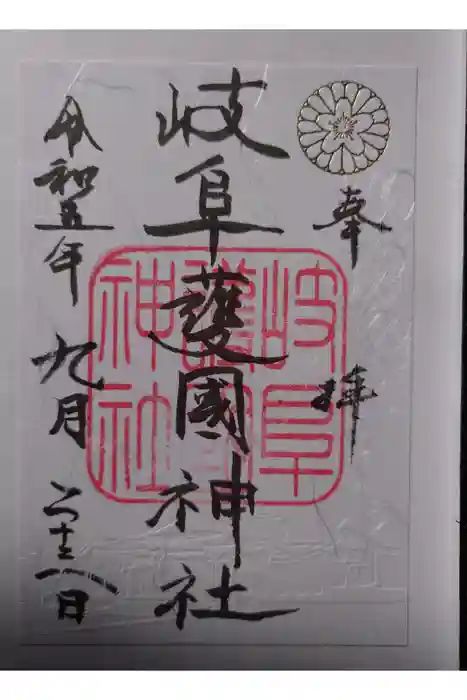 奉拝
岐阜護國神社
令和五年九月二十八日
岐阜
護國
神社